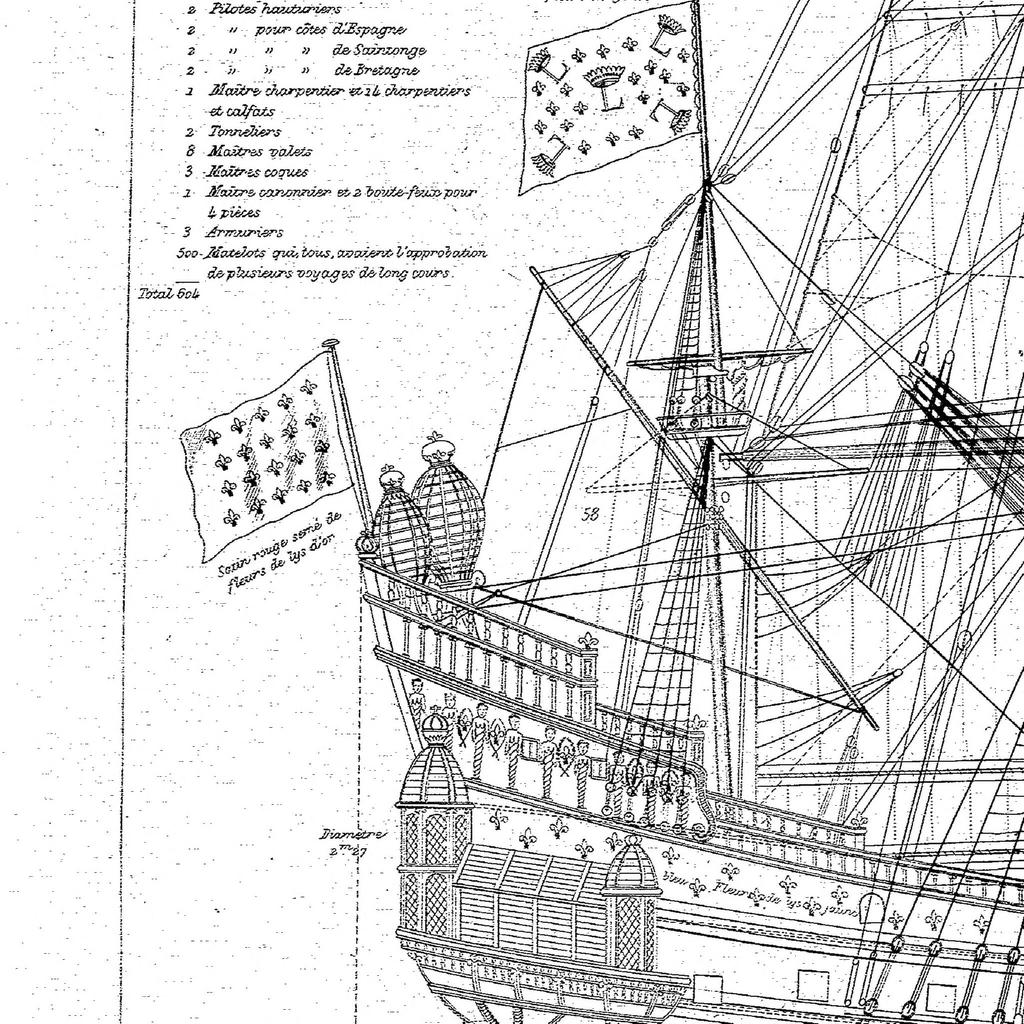 2 Pilotes hauturiers
2 " pour côtes d'Espagne
2 " " " de Saintonge
2 " " " de Bretagne
1 Maître charpentier et 14 charpentiers
et calfats
2 Tonneliers
8 Maîtres valets
3 Maîtres coques
1 Maître canonnier et 2 boute-feux pour
4 pièces
3 Armuriers
500 Matelots qui, tous, avaient l'approbation
de plusieurs voyages de long cours.
Total 604
58
Satin rouge semé de
fleurs de lys d'or
Diamètre
2ᵐ27
bleu Fleurs de lys jaune